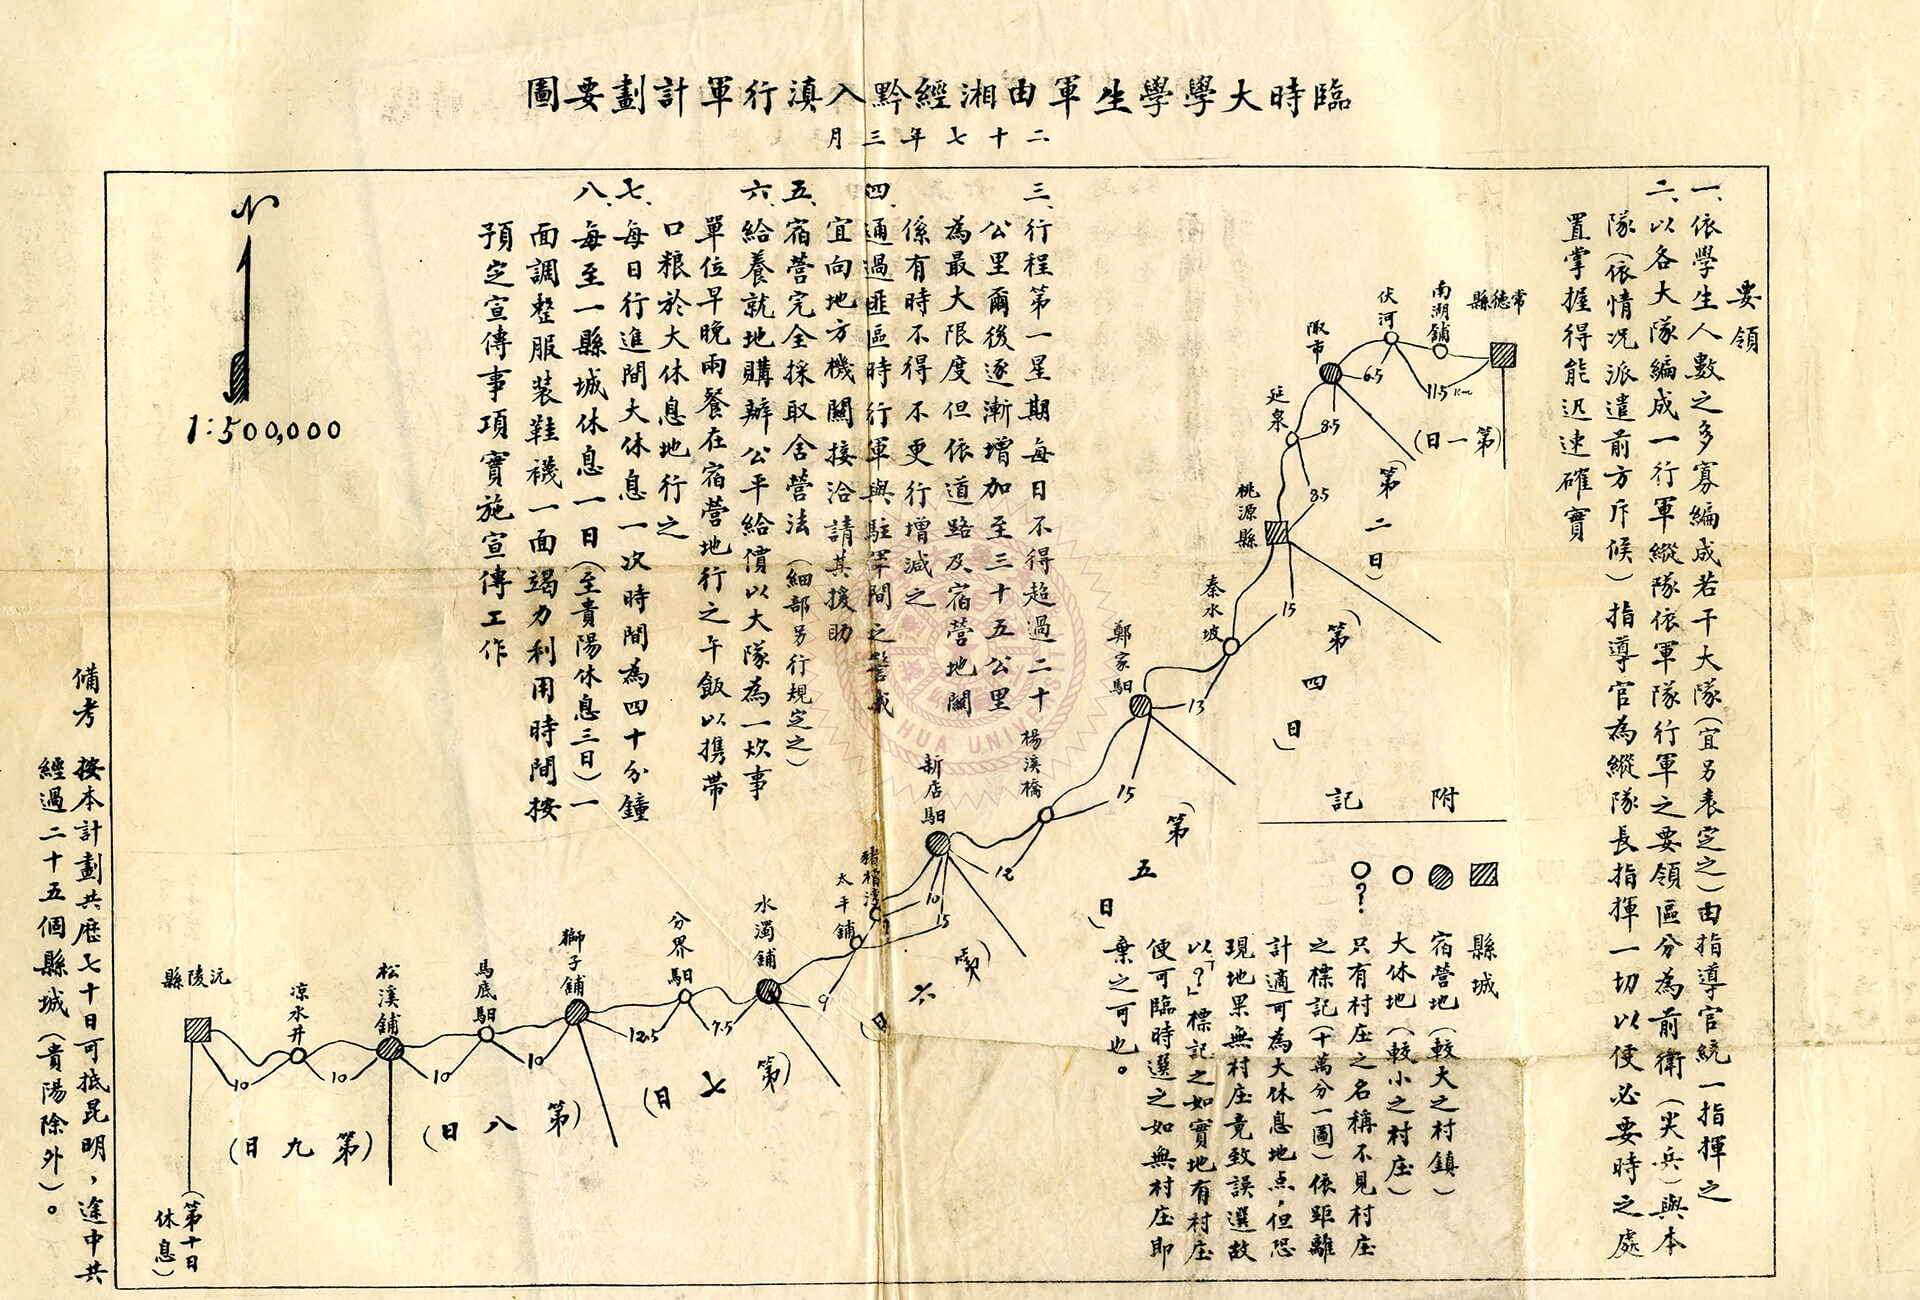 臨時大學學生軍由湘經黔入滇行軍計劃要圖
二十七年三月
要領
一、依學生人數之多寡編成若干大隊(宜另表定之)由指導官統一指揮之
二、以各大隊編成一行軍縱隊依軍隊行軍之要領區分為前衛(尖兵)與本
隊(依情況派遣前方斥候)指導官為縱隊長指揮一切以便必要時之處
置掌握得能迅速確實
三、行程第一星期每日不得超過二十
公里爾後逐漸增加至三十五公里
為最大限度但依道路及宿營地關
係有時不得不更行增減之
四、通過匪區時行軍與駐軍間之警戒
宜向地方機關接洽請其援助
五、宿營完全採取舍營法(細部另行規定之)
六、給養就地購辦公平給價以大隊為一炊事
單位早晚兩餐在宿營地行之午飯以携帶
口粮於大休息地行之
七、每日行進間大休息一次時間為四十分鐘
八、每至一縣城休息一日(至貴陽休息三日)一
面調整服裝鞋襪一面竭力利用時間按
預定宣傳事項實施宣傳工作
N
1:500,000
常德縣
南湖舖
伏河
陬市
延泉
桃源縣
秦水坡
鄭家馹
楊溪橋
新店馹
豬楠湾
太平舖
水濁舖
分界馹
獅子舖
馬底馹
松溪舖
凉水井
沅陵縣
11.5 km
6.5
8.5
8.5
15
13
15
12
10
?
15
9
7.5
12.5
10
10
10
10
(第一日)
(第二日)
(第四日)
(第五日)
(第六日)
(第七日)
(第八日)
(第九日)
(第十日
休息)
附記
縣城
宿營地(較大之村鎮)
大休地(較小之村庄)
?
只有村庄之名稱不見村庄
之標記(十萬分一圖)依距離
計適可為大休息地点,但恐
現地果無村庄竟致誤選故
以「?」標記之如實地有村庄
便可臨時選之如無村庄即
棄之可也。
備考
按本計劃共歷七十日可抵昆明,途中共
經過二十五個縣城(貴陽除外)。
HUA UNIVERSIT